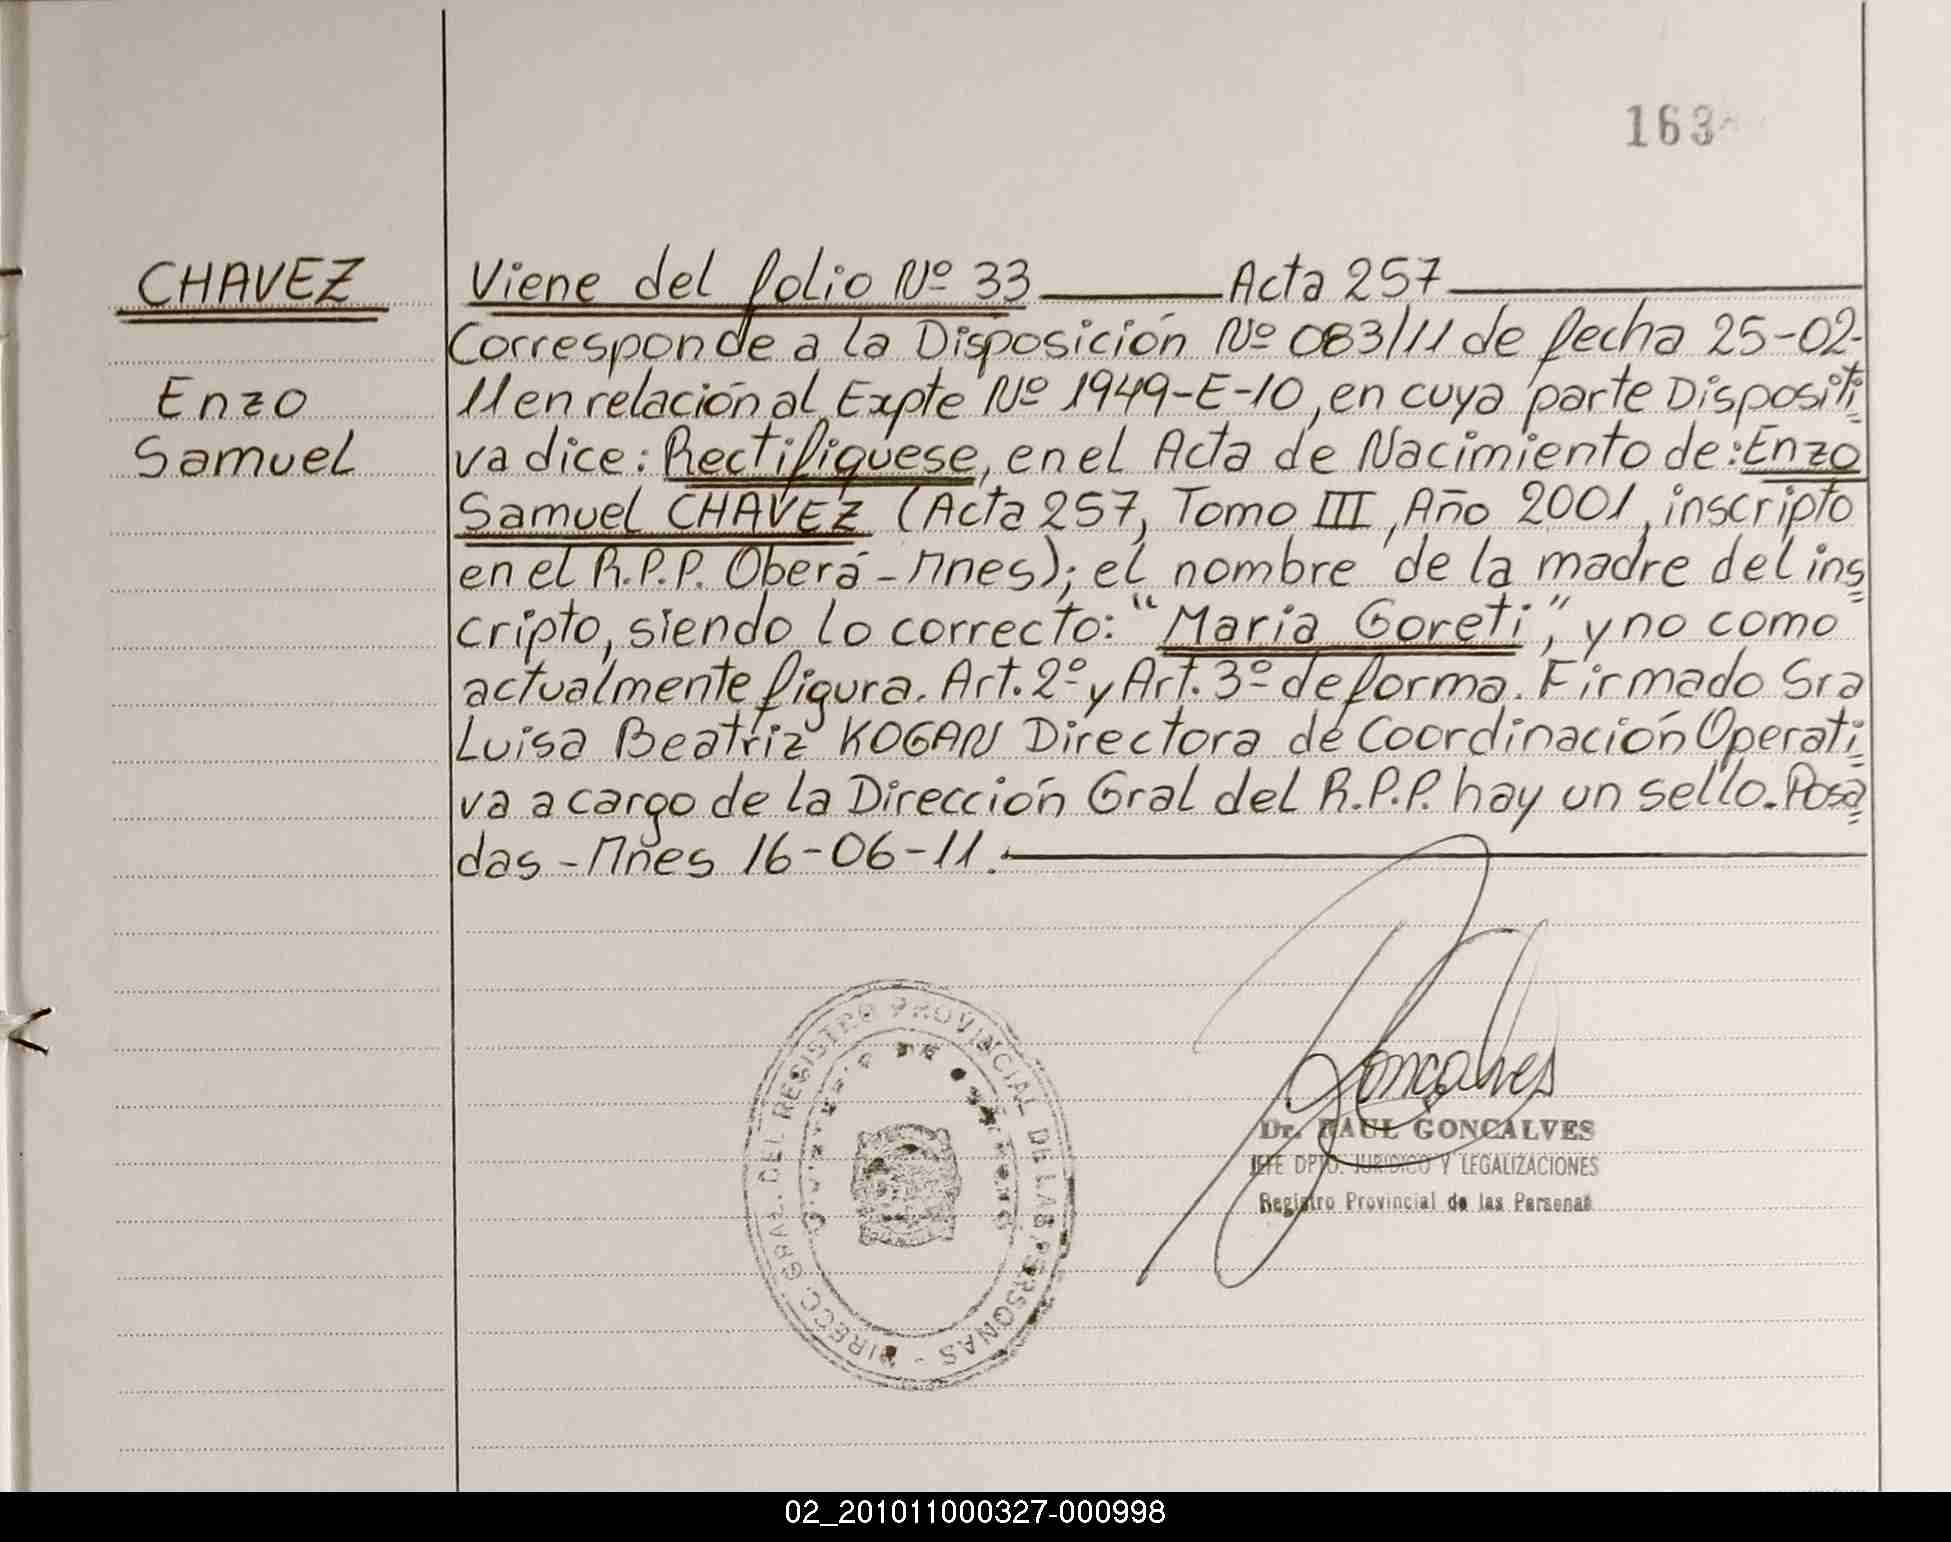 163
CHAVEZ
Enzo
Samuel
Viene del folio Nº 33 Acta 257
Corresponde a la Disposición Nº 083/11 de fecha 25-02-
11 en relación al Expte Nº 1949-E-10, en cuya parte Dispositi=
va dice: Rectifiquese, en el Acta de Nacimiento de: Enzo
Samuel CHAVEZ (Acta 257, Tomo III, Año 2001, inscripto
en el R.P.P. Oberá - Mnes); el nombre de la madre del ins=
cripto, siendo lo correcto: "Maria Goreti", y no como
actualmente figura. Art. 2º y Art. 3º de forma. Firmado Sra
Luisa Beatriz KOGAN Directora de Coordinación Operati=
va a cargo de la Dirección Gral del R.P.P. hay un sello. Posa=
das - Mñes 16-06-11.
DIRECC. GRAL. DEL REGISTRO PROVINCIAL DE LAS PERSONAS -
Goncalves
Dr. RAUL GONCALVES
JEFE DPTO. JURIDICO Y LEGALIZACIONES
Registro Provincial de las Personas
02_201011000327-000998